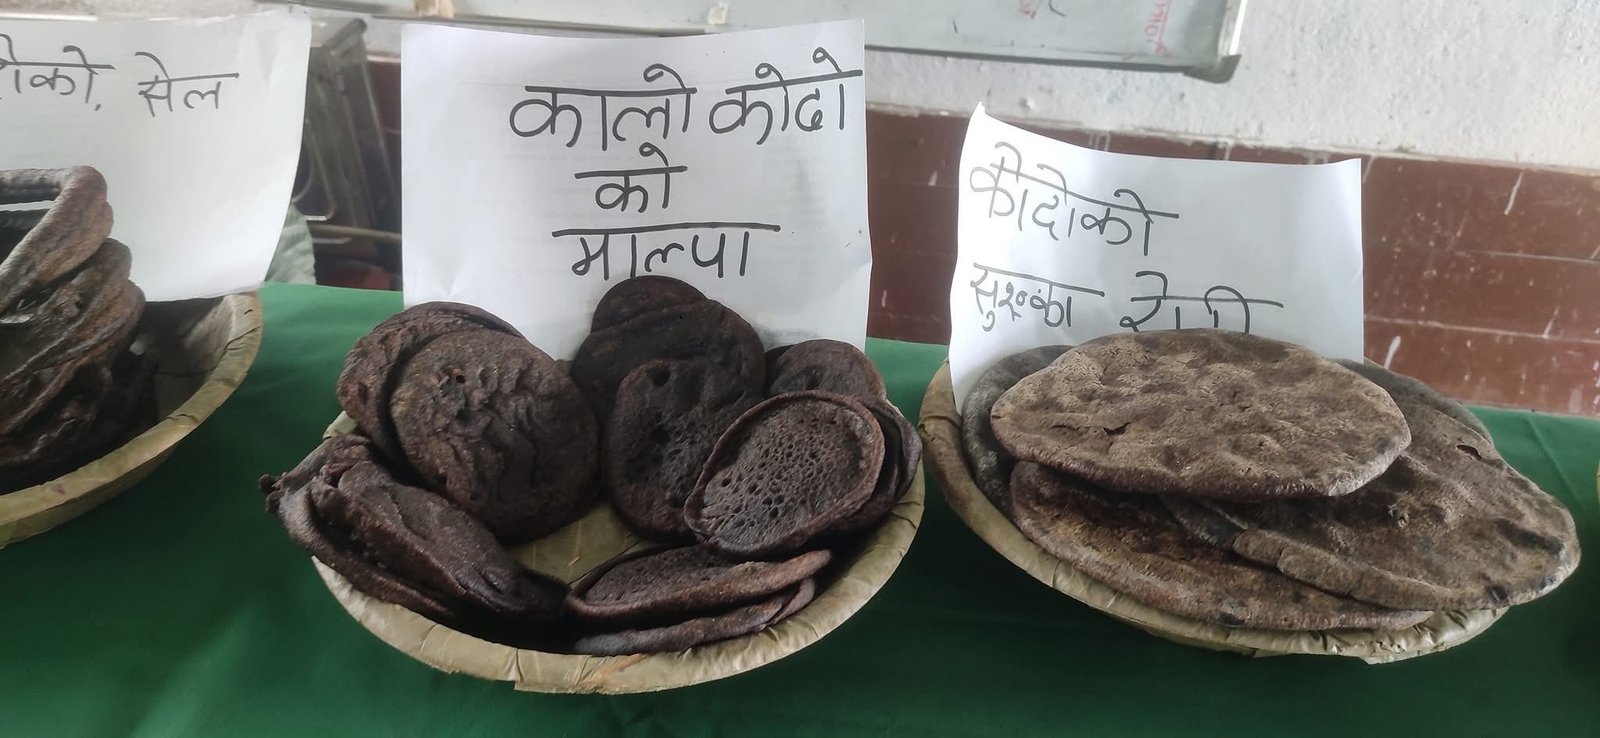 सेल
कालो कोदो
को
माल्पा
कोदोको
सुख्खा